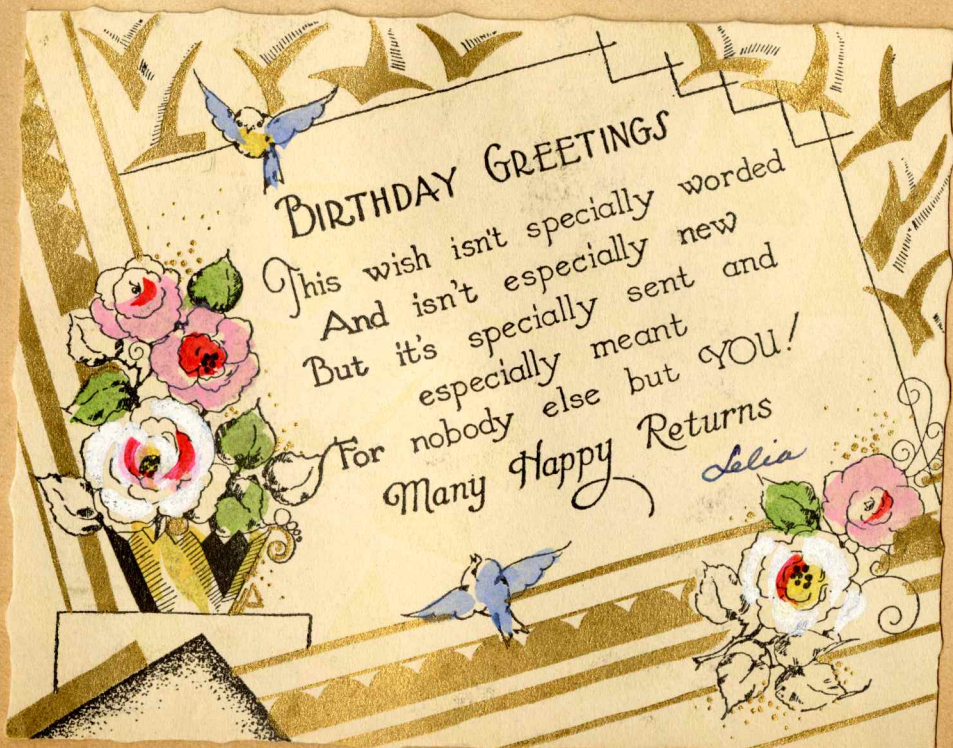 BIRTHDAY GREETINGS
This wish isn't specially worded
And isn't especially new
But it's specially sent and
especially meant
For nobody else but YOU!
Many Happy Returns
Lelia